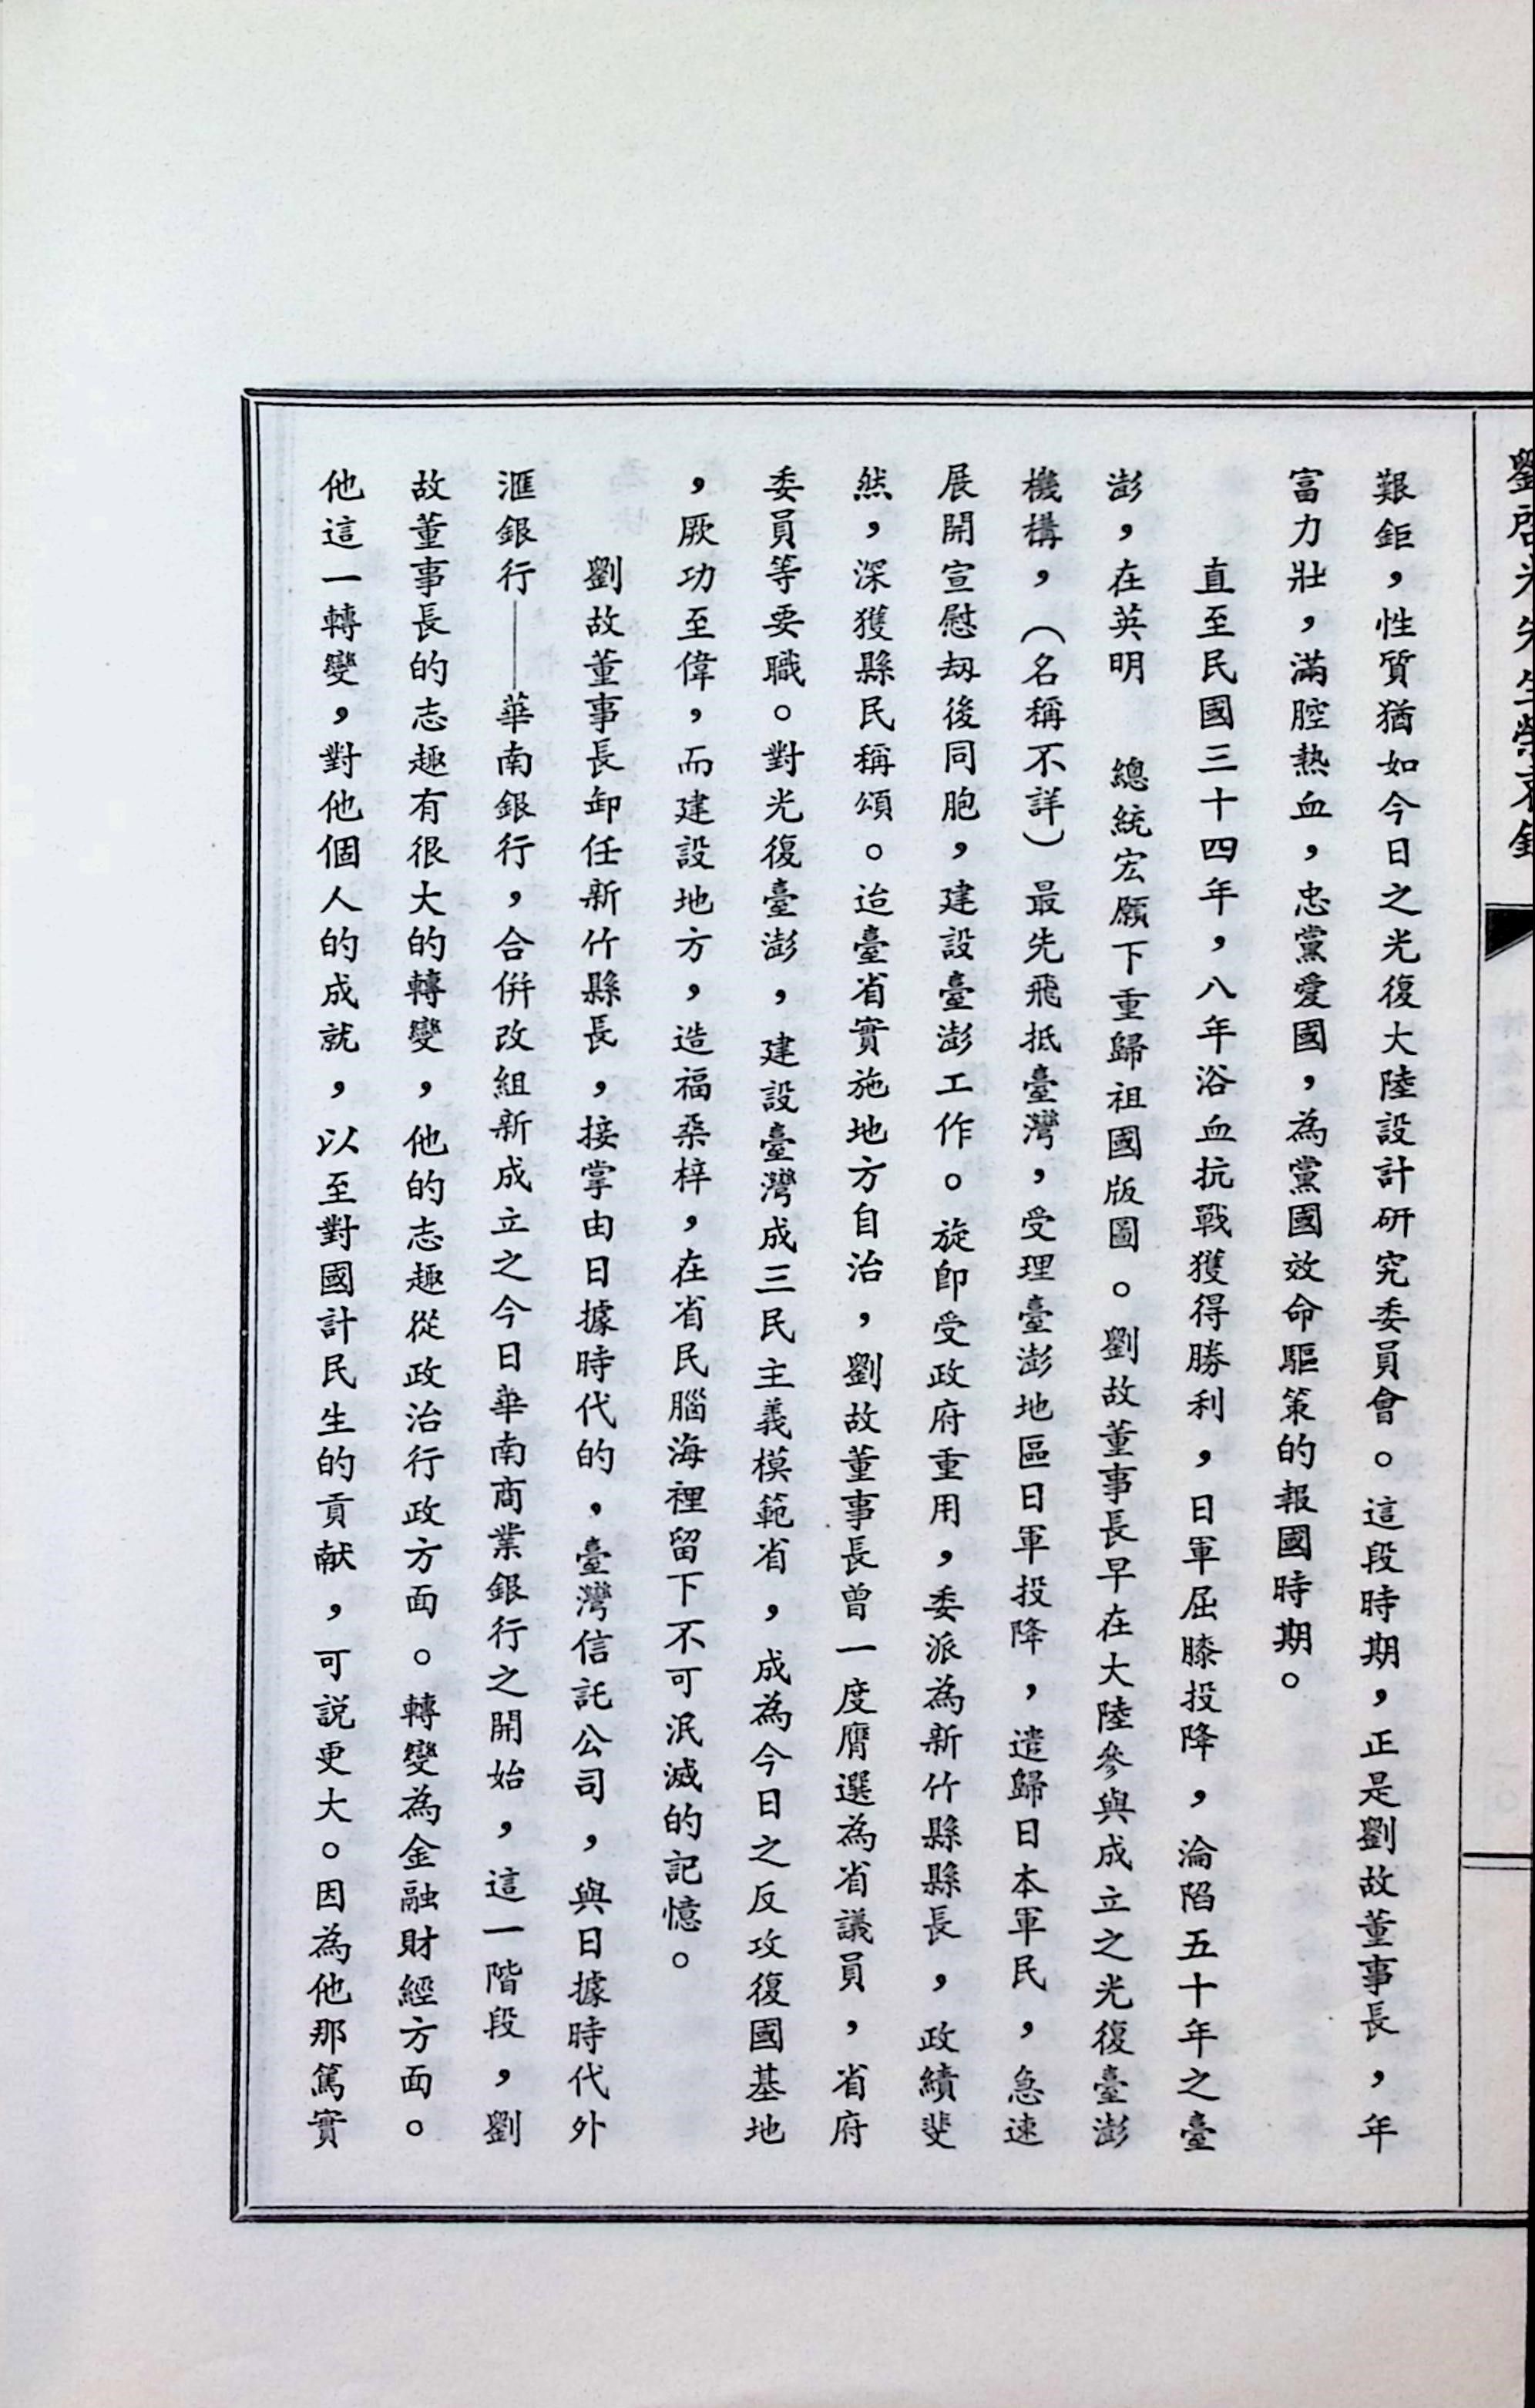 劉啓光先生榮哀錄
艱鉅，性質猶如今日之光復大陸設計研究委員會。這段時期，正是劉故董事長，年
富力壯，滿腔熱血，忠黨愛國，為黨國效命驅策的報國時期。
直至民國三十四年，八年浴血抗戰獲得勝利，日軍屈膝投降，淪陷五十年之臺
澎，在英明　總統宏願下重歸祖國版圖。劉故董事長早在大陸參與成立之光復臺澎
機構，（名稱不詳）最先飛抵臺灣，受理臺澎地區日軍投降，遣歸日本軍民，急速
展開宣慰刼後同胞，建設臺澎工作。旋卽受政府重用，委派為新竹縣縣長，政績斐
然，深獲縣民稱頌。迨臺省實施地方自治，劉故董事長曾一度膺選為省議員，省府
委員等要職。對光復臺澎，建設臺灣成三民主義模範省，成為今日之反攻復國基地
，厥功至偉，而建設地方，造福桑梓，在省民腦海裡留下不可泯滅的記憶。
劉故董事長卸任新竹縣長，接掌由日據時代的，臺灣信託公司，與日據時代外
滙銀行——華南銀行，合併改組新成立之今日華南商業銀行之開始，這一階段，劉
故董事長的志趣有很大的轉變，他的志趣從政治行政方面。轉變為金融財經方面。
他這一轉變，對他個人的成就，以至對國計民生的貢献，可説更大。因為他那篤實